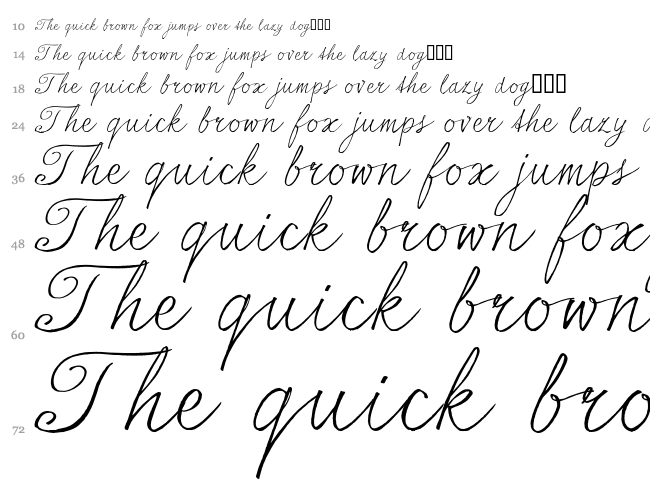 10 The quick brown fox jumps over the lazy dog▯▯▯
14 The quick brown fox jumps over the lazy dog▯▯▯
18 The quick brown fox jumps over the lazy dog▯▯▯
24 The quick brown fox jumps over the lazy d
36 The quick brown fox jumps
48 The quick brown fox
60 The quick brown
72 The quick bro